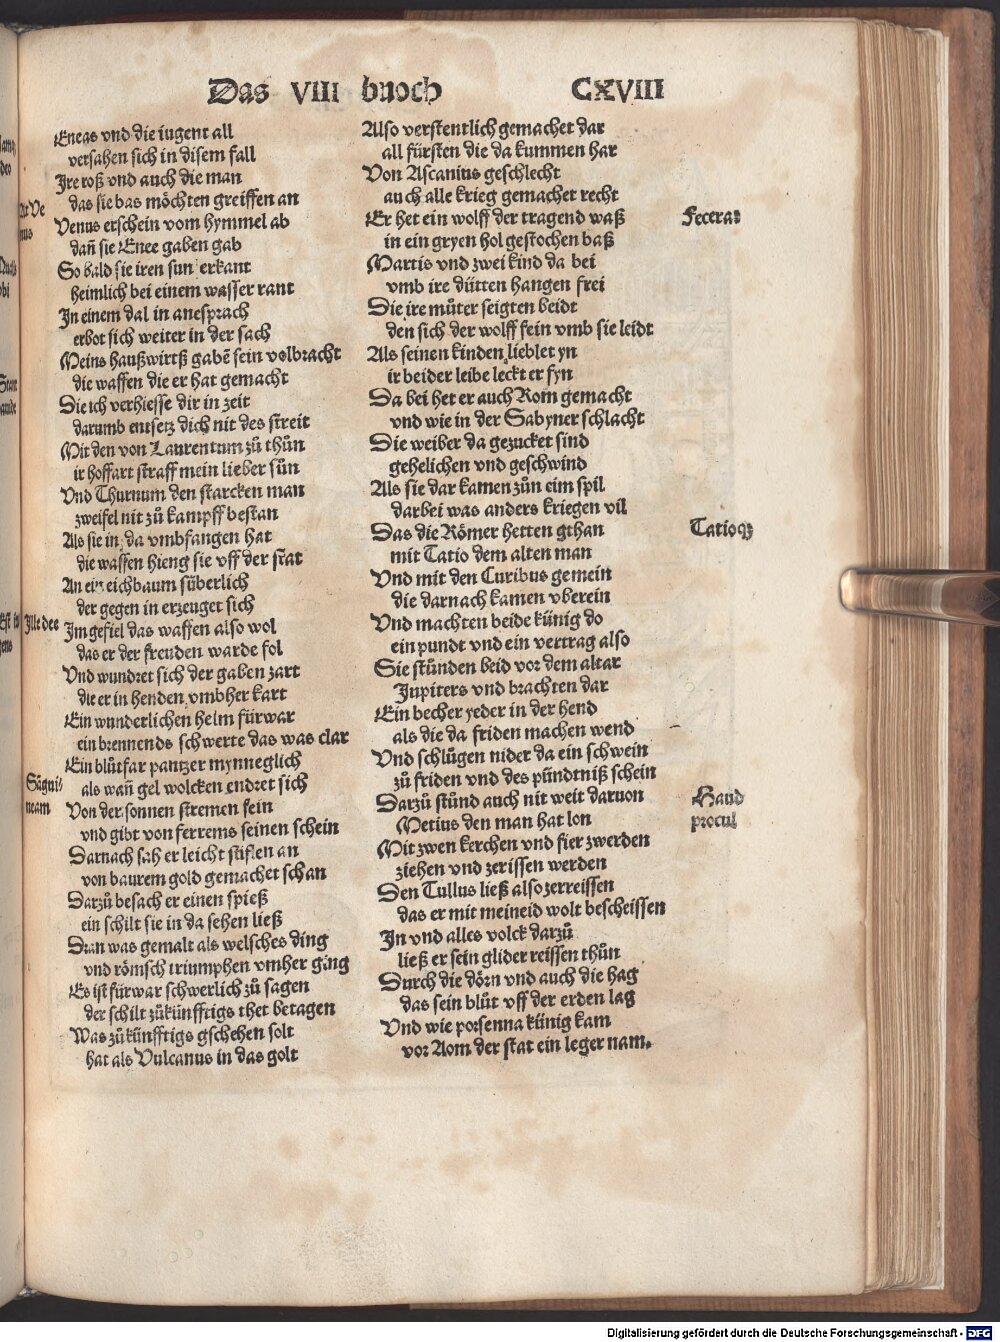 Das VIII buoch CXVIII
Eneas vnd die iugent all
versahen sich in disem fall
Ire roß vnd auch die man
das sie bas möchten greiffen an
Venus erschein vom hymmel ab
dañ sie Enee gaben gab
So bald sie iren sun erkant
heimlich bei einem wasser rant
In einem dal in anesprach
erbot sich weiter in der sach
Meins haußwirtß gabẽ sein volbracht
die waffen die er hat gemacht
Die ich verhiesse dir in zeit
darumb entsetz dich nit des streit
Mit den von Laurentum zů thůn
ir hoffart straff mein lieber sůn
Vnd Thurnum den starcken man
zweifel nit zů kampff bestan
Als sie in da vmbfangen hat
die waffen hieng sie vff der stat
An ein eichbaum süberlich
der gegen in erzeuget sich
Ille dee
Im gefiel das waffen also wol
das er der freuden warde fol
Vnd wundret sich der gaben zart
die er in henden vmbher kart
Ein wunderlichen helm fürwar
ein brennends schwerte das was clar
Ein blůtfar pantzer mynneglich
Sãgui-
neam
als wañ gel wolcken endret sich
Von der sonnen stremen fein
vnd gibt von ferrems seinen schein
Darnach sah er leicht stiflen an
von baurem gold gemachet schan
Darzů besach er einen spieß
ein schilt sie in da sehen ließ
Dran was gemalt als welsches ding
vnd römsch triumphen vmher ging
Es ist fürwar schwerlich zů sagen
der schilt zůkünfftigs thet betagen
Was zůkünfftigs gschehen solt
hat als Vulcanus in das golt
Also verstentlich gemachet dar
all fürsten die da kummen har
Von Ascanius geschlecht
auch alle krieg gemachet recht
Er het ein wolff der tragend waß
Fecerat
in ein gryen hol gestochen baß
Martis vnd zwei kind da bei
vmb ire dütten hangen frei
Die ire můter seigten beidt
den sich der wolff fein vmb sie leidt
Als seinen kinden lieblet yn
ir beider leibe leckt er fyn
Da bei het er auch Rom gemacht
vnd wie in der Sabyner schlacht
Die weiber da gezucket sind
gehelichen vnd geschwind
Als sie dar kamen zůn eim spil
darbei was anders kriegen vil
Das die Römer hetten gthan
Tatioqȝ
mit Tatio dem alten man
Vnd mit den Curibus gemein
die darnach kamen vberein
Vnd machten beide künig do
ein pundt vnd ein vertrag also
Sie stůnden beid vor dem altar
Jupiters vnd brachten dar
Ein becher yeder in der hend
als die da friden machen wend
Vnd schlůgen nider da ein schwein
zů friden vnd des pündtniß schein
Darzů stůnd auch nit weit daruon
Haud
procul
Metius den man hat lon
Mit zwen kerchen vnd fier zwerden
ziehen vnd zerissen werden
Den Tullus ließ also zerreissen
das er mit meineid wolt bescheissen
In vnd alles volck darzů
ließ er sein glider reissen thůn
Durch die dörn vnd auch die hag
das sein blůt vff der erden lag
Vnd wie porsenna künig kam
vor Rom der stat ein leger nam.
Digitalisierung gefördert durch die Deutsche Forschungsgemeinschaft - DFG